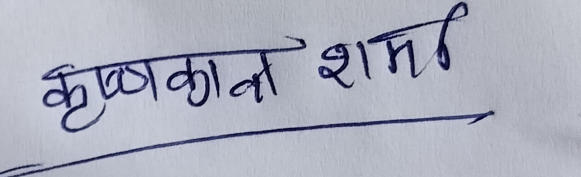 कृष्णकान्त शर्मा